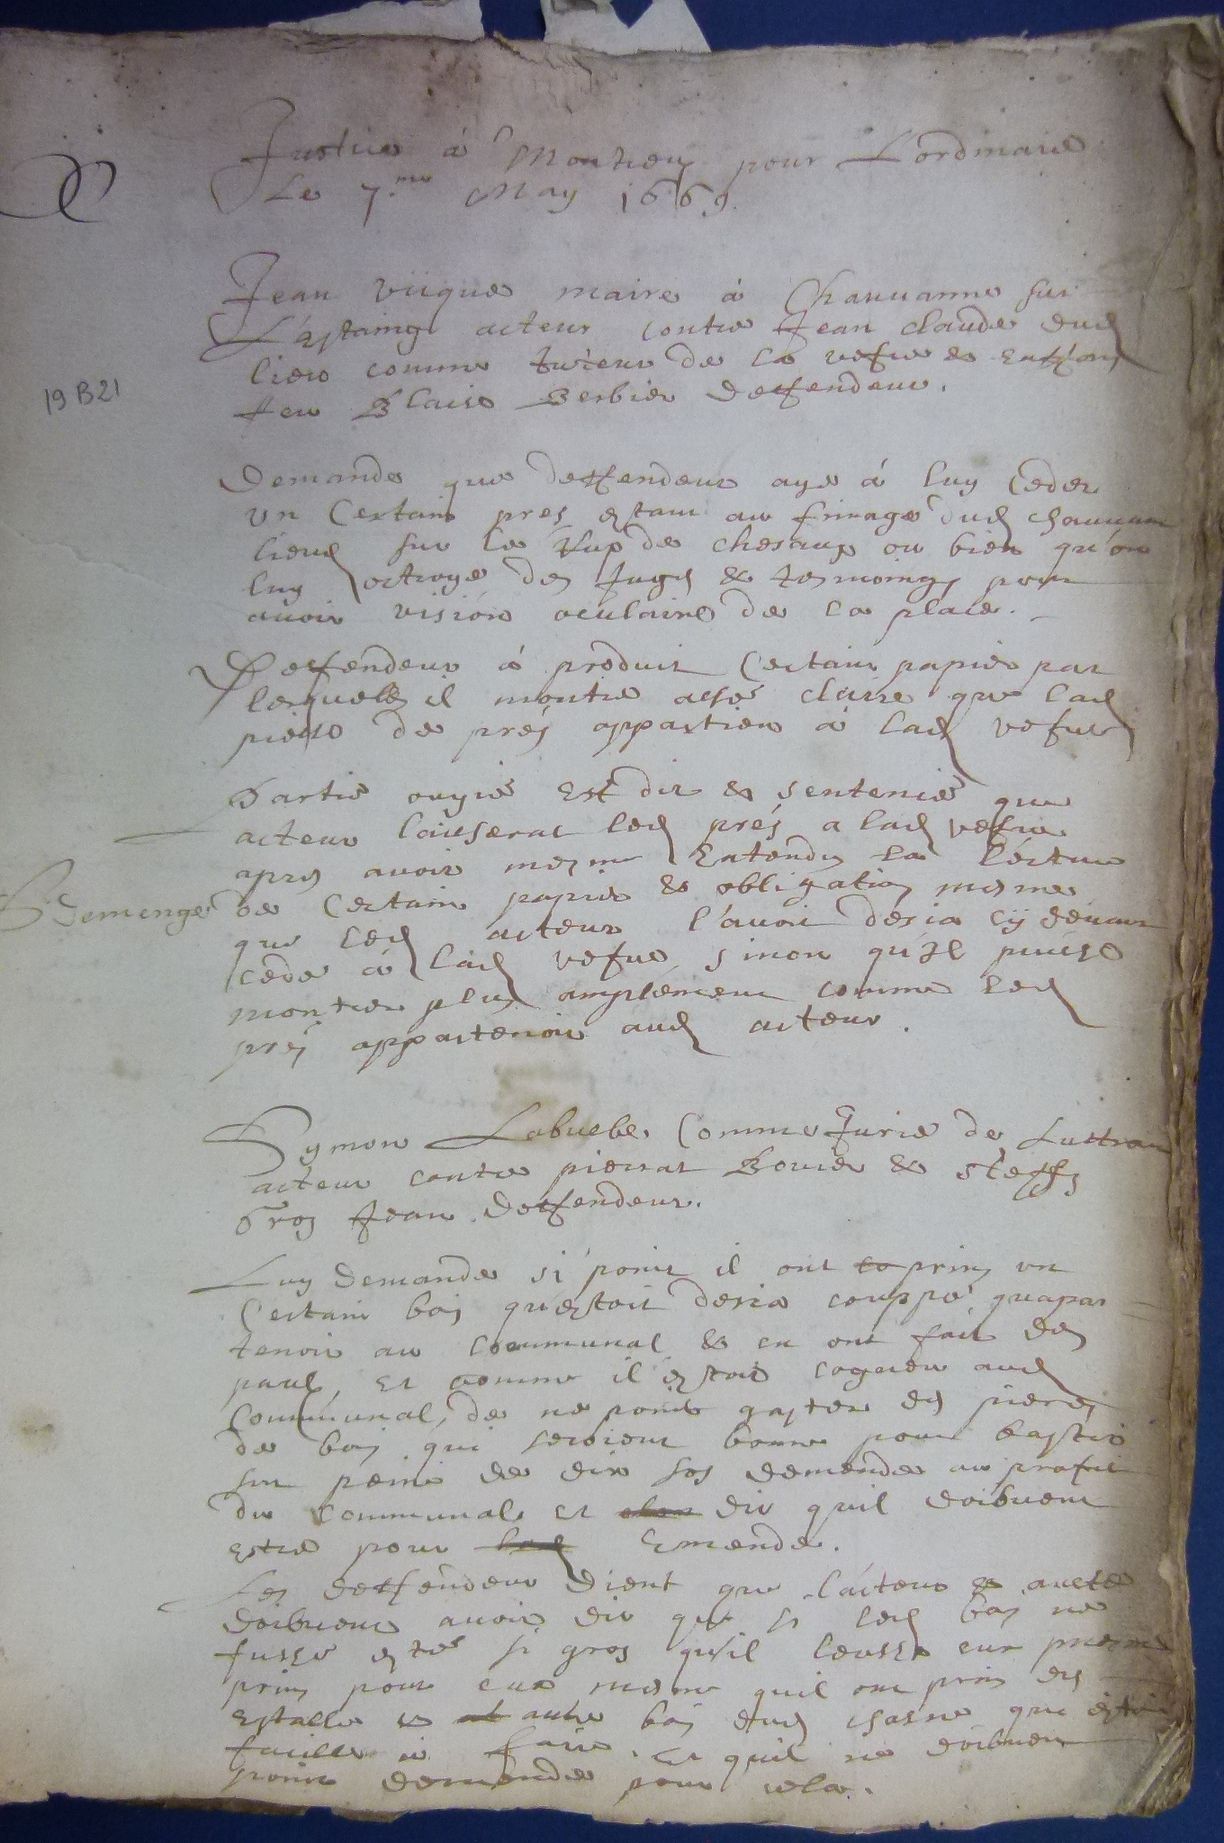 Justice à Montreu pour Lordinaire
Le 7.me May 1669.
Jean viique maire à Chauuanne sur
L'estaing acteur contre Jean claude dud
lieu comme tuteur de la vefue &
feu Blaise Berbier deffendeur.
19 B21
Demande que deffendeur aye à luy ceder
vn Certain prez estant au finage dud chauuanne
sur le de chesaux ou bien qu'on
luy octroye des Juges & tesmoings pour
auoir vision oculaire de la place.
Deffendeur à produit Certain papier par
lesquelles il montre assé claire que lad
piesse de prez appartien à lad vefue
Partie ouyie est dit & sentencié que
acteur laisserat led prés a lad vefue
apres auoir mesme Entendu la lécture
Demenge
de Certain papier & obligation mesme
que led acteur l'auoit desia cÿ deuant
cede à lad vefue sinon qu'Il puisse
montrer plus amplement comme led
préz appartenoir aud acteur.
Symon Labuebe Comme Jurie de Luttran
acteur contre pierrat Bourer & steffe
Gros Jean deffendeur.
Luy demande si point il ont prins vn
Certain bois qu'estoit desia couppé, quapar
tenoir au communal & en ont fait des
paul, et comme il estoit cogneu aud
Communal, de ne point gaster des pieces
de bois qui seroient bonne pour bastir
sur peine de dix sos demende au profit
du communal et dit quil doibuent
estre pour Emende.
Les deffendeur dient que l'acteur & autre
doibuent auoir dit que si led bois ne
fusse esté si gros qu'il leusse eux mesme
prins pour eux mesme quil ont prins des
estalle & autre bois dud chasne que estoit
facille à faire. Et quil ne doibuent
point demende pour cela.